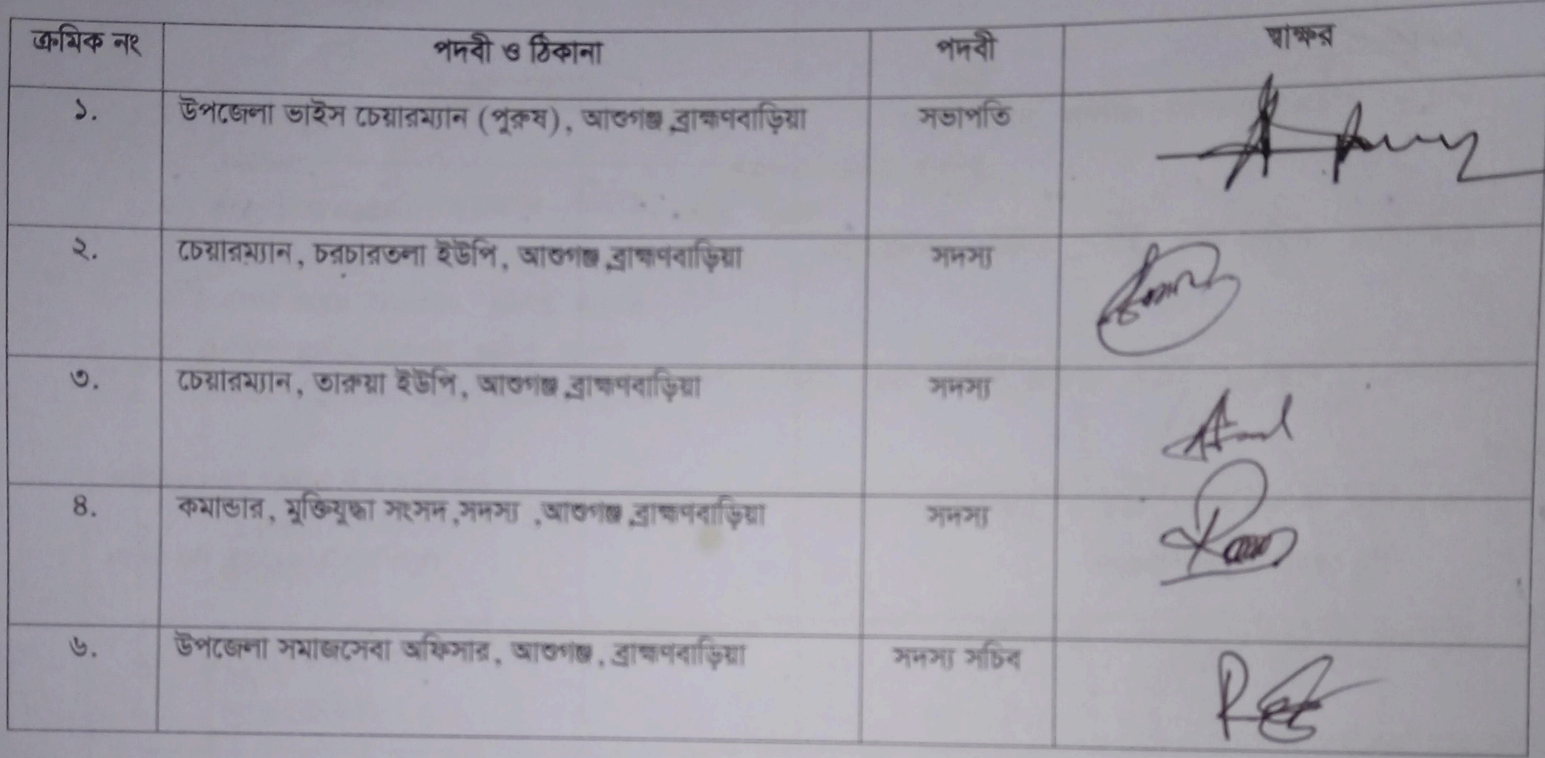 ক্রমিক নং পদবী ও ঠিকানা পদবী স্বাক্ষর
১. উপজেলা ভাইস চেয়ারম্যান (পুরুষ), আশুগঞ্জ,ব্রাহ্মণবাড়িয়া সভাপতি
২. চেয়ারম্যান, চরচারতলা ইউপি, আশুগঞ্জ,ব্রাহ্মণবাড়িয়া সদস্য
৩. চেয়ারম্যান, তারুয়া ইউপি, আশুগঞ্জ,ব্রাহ্মণবাড়িয়া সদস্য
৪. কমান্ডার, মুক্তিযুদ্ধা সংসদ,সদস্য ,আশুগঞ্জ,ব্রাহ্মণবাড়িয়া সদস্য
৬. উপজেলা সমাজসেবা অফিসার, আশুগঞ্জ, ব্রাহ্মণবাড়িয়া সদস্য সচিব